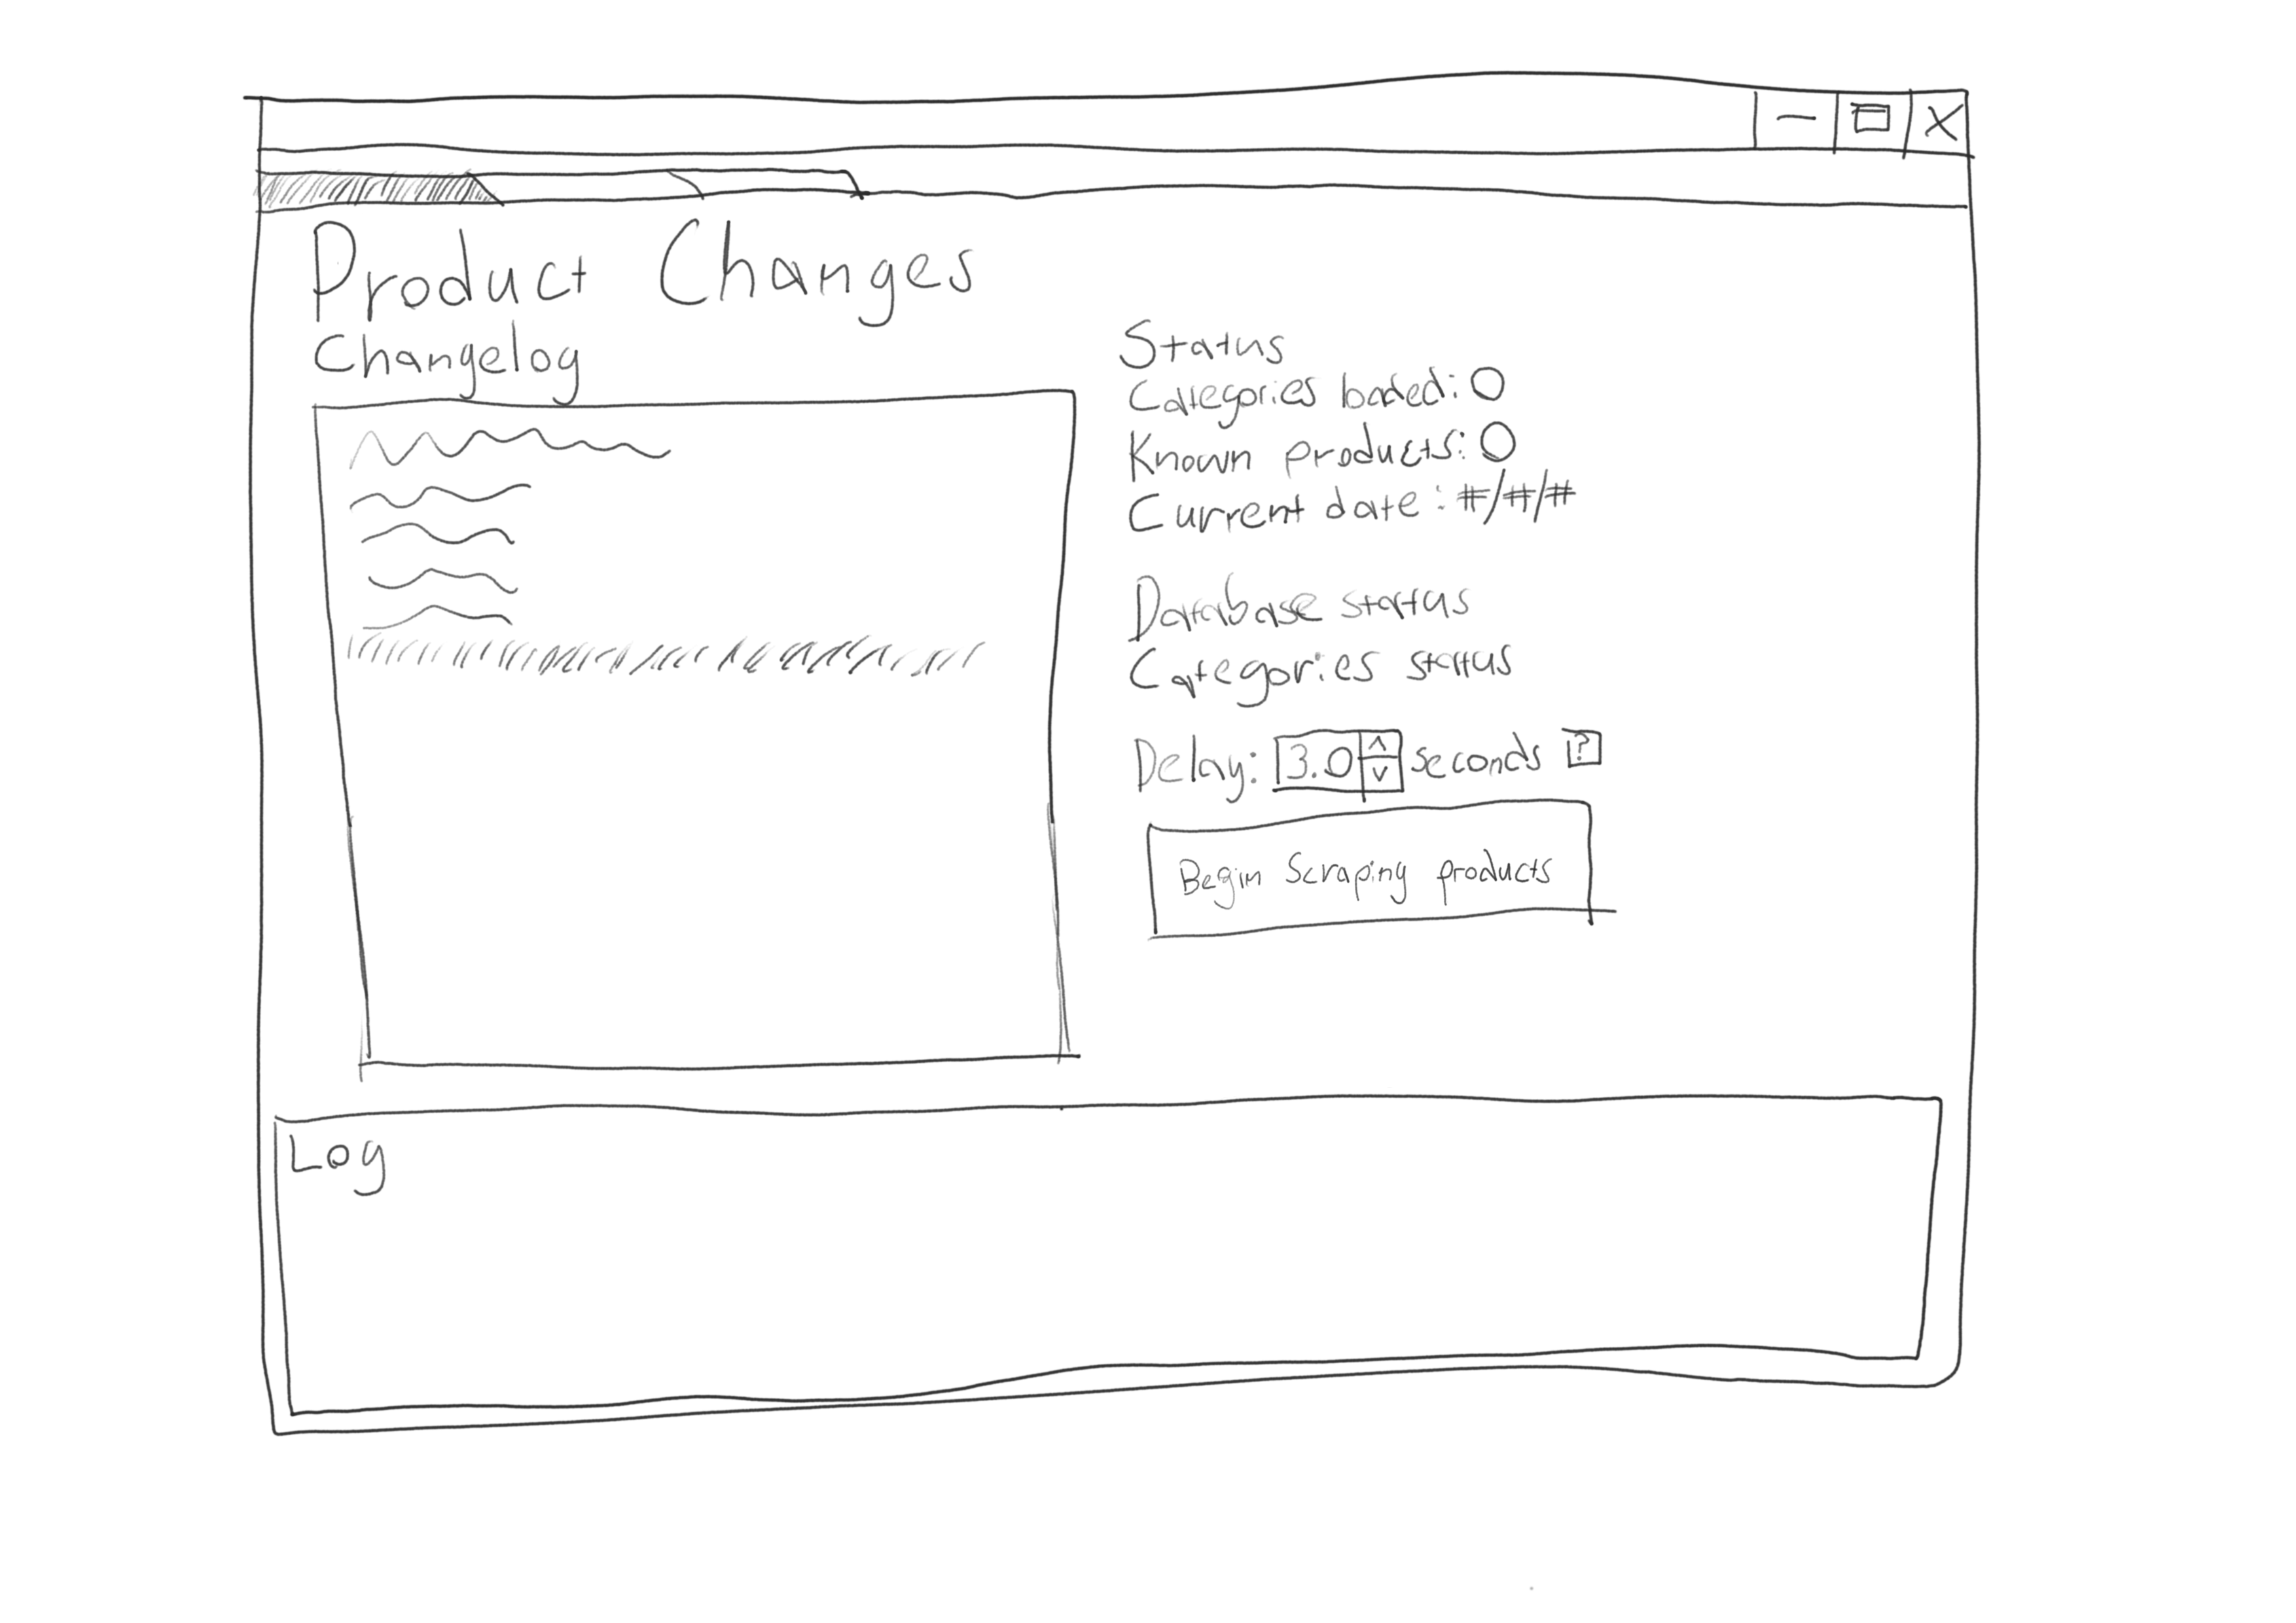 Product Changes
Changelog
Status
Categories loaded: 0
Known products: 0
Current date: #/#/#
Database status
Categories status
Delay: 3.0 seconds ?
Begin Scraping products
Log